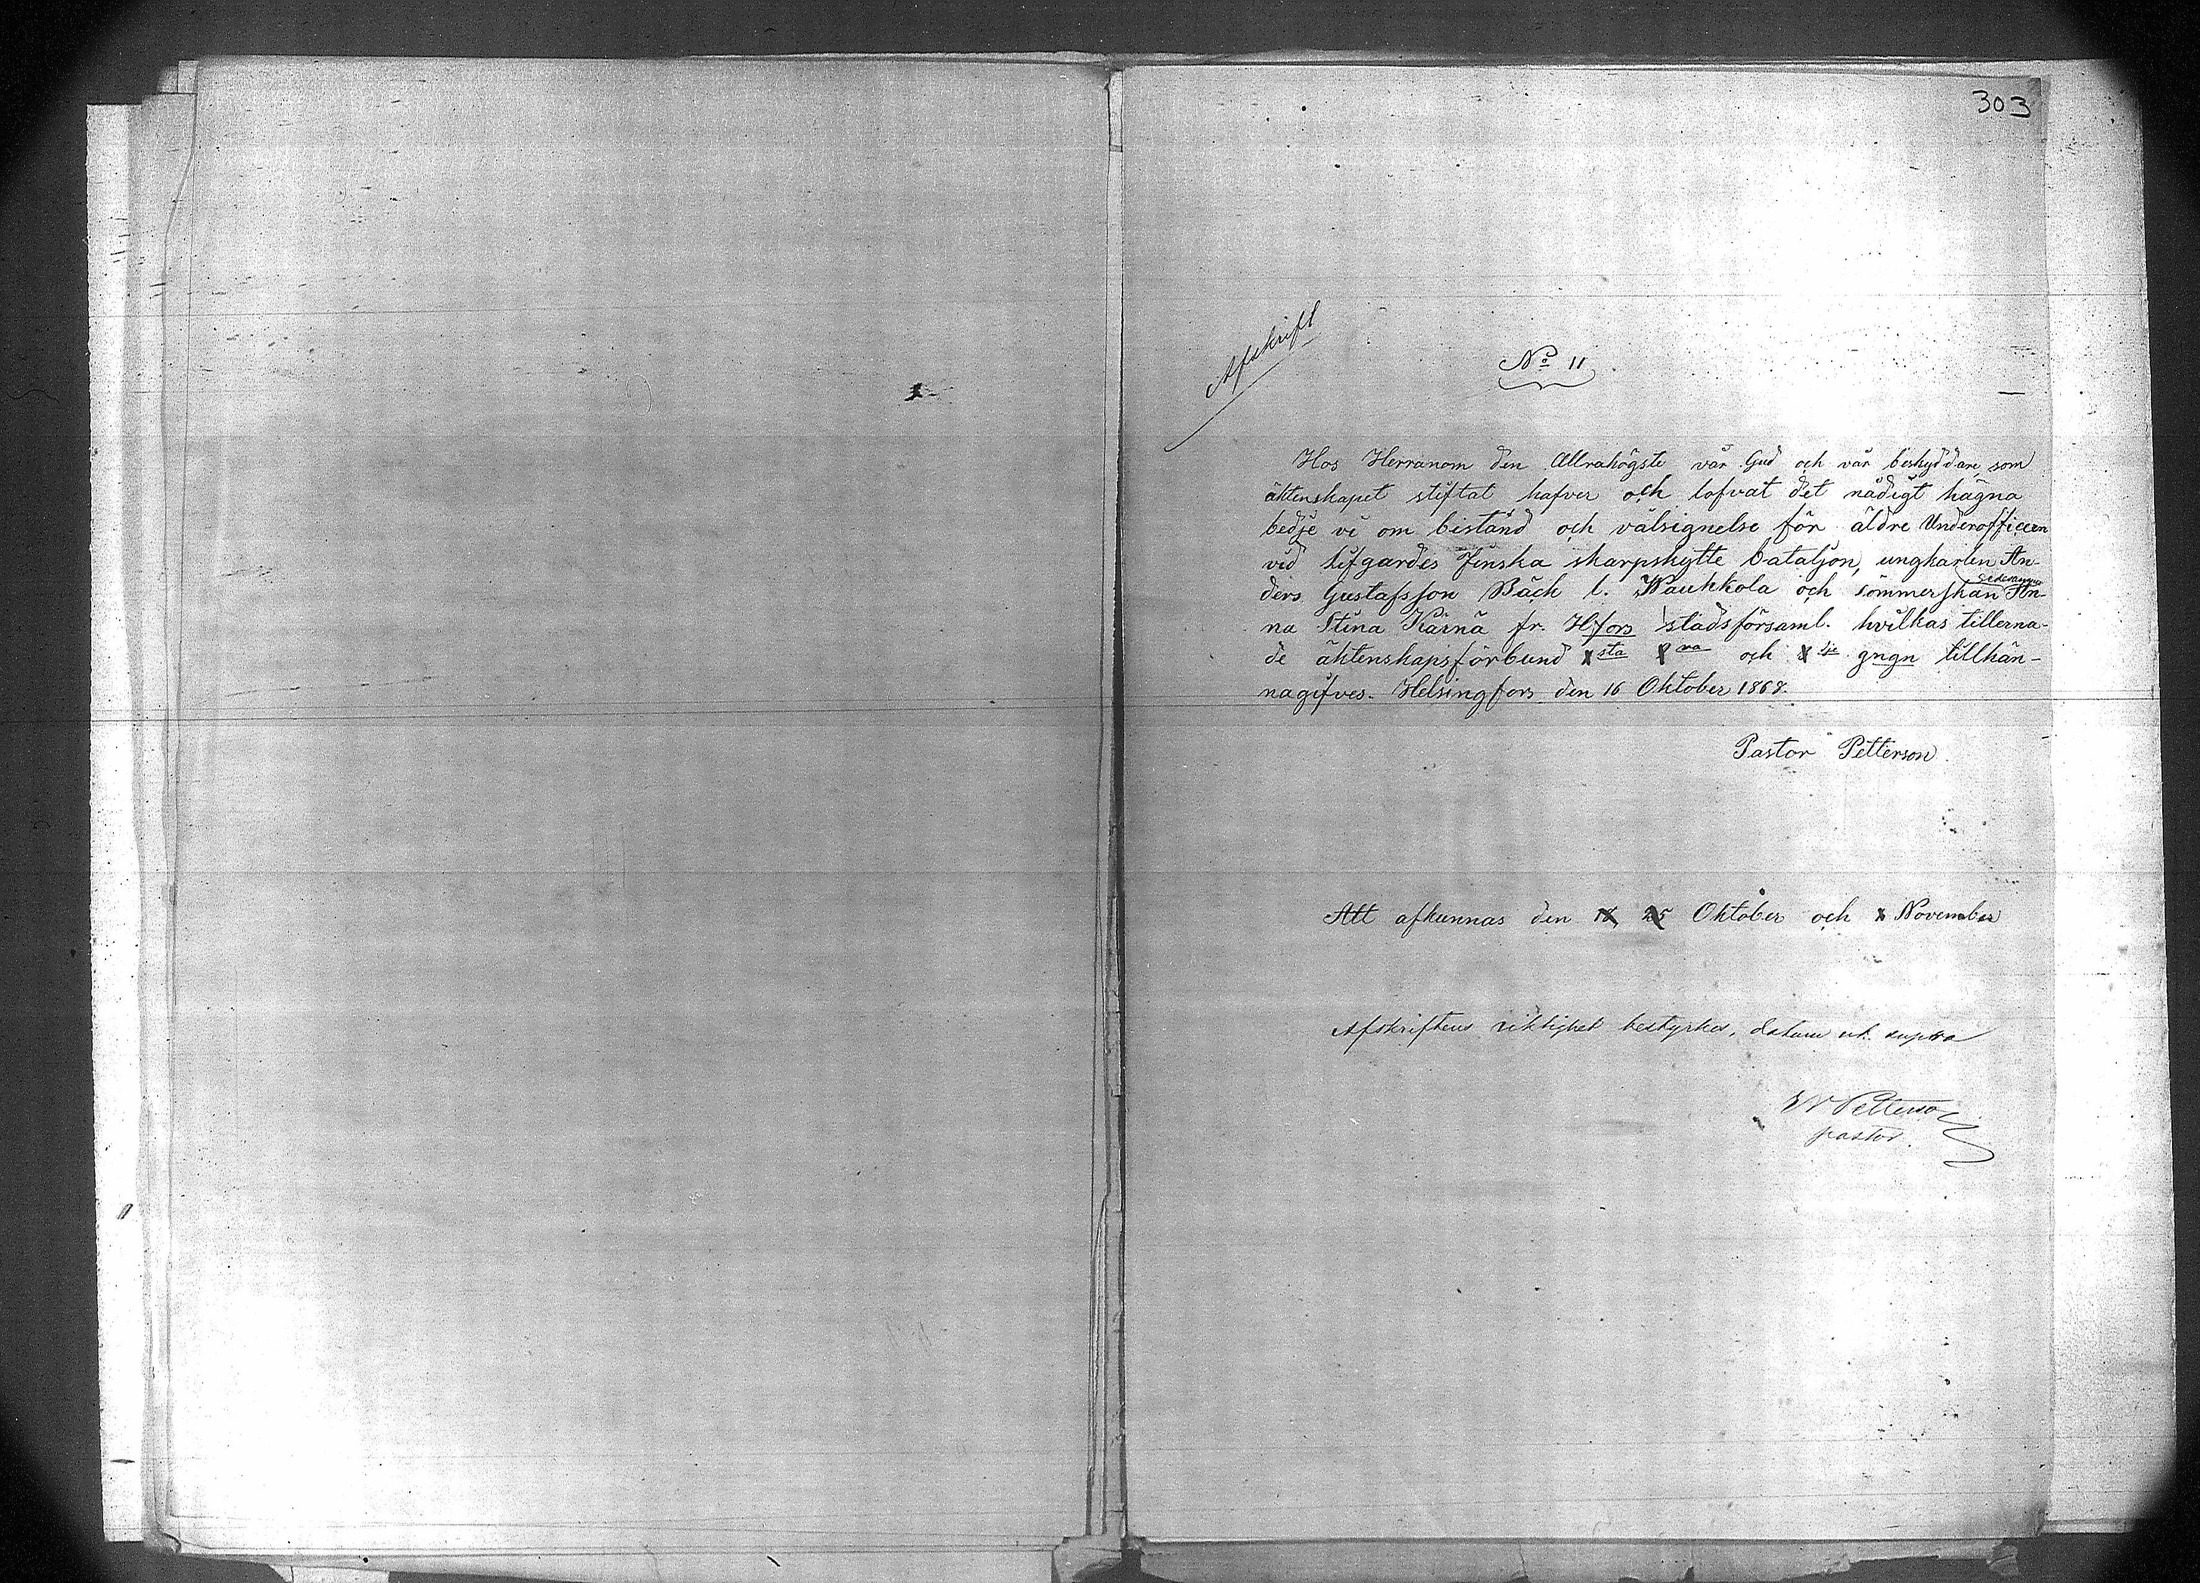 303
Afskrift
No 11
Hos Herranom den Allrahögste vår Gud och vår beskyddare, som
äktenskapet stiftat hafver och lofvat det nådigt hägna
bedje vi om bistånd och välsignelse för äldre Underofficern
vid Lifgardes Finska skarpskytte bataljon, ungkarlen An-
ders Gustafsson Bäck l. Wauhkola och sömmerskan An-
na Stina Kärnä fr. Hfors stadsförsaml. hvilkas tillerna-
de äktenskapsförbund sta ra och dje gngn tillkän-
nagifves. Helsingfors den 16 Oktober 1868.
Pastor Petterson.
Att afkunnas den 18 25 Oktober och November
Afskriftens riktighet bestyrker, datum ut supra
Petterson
pastor.